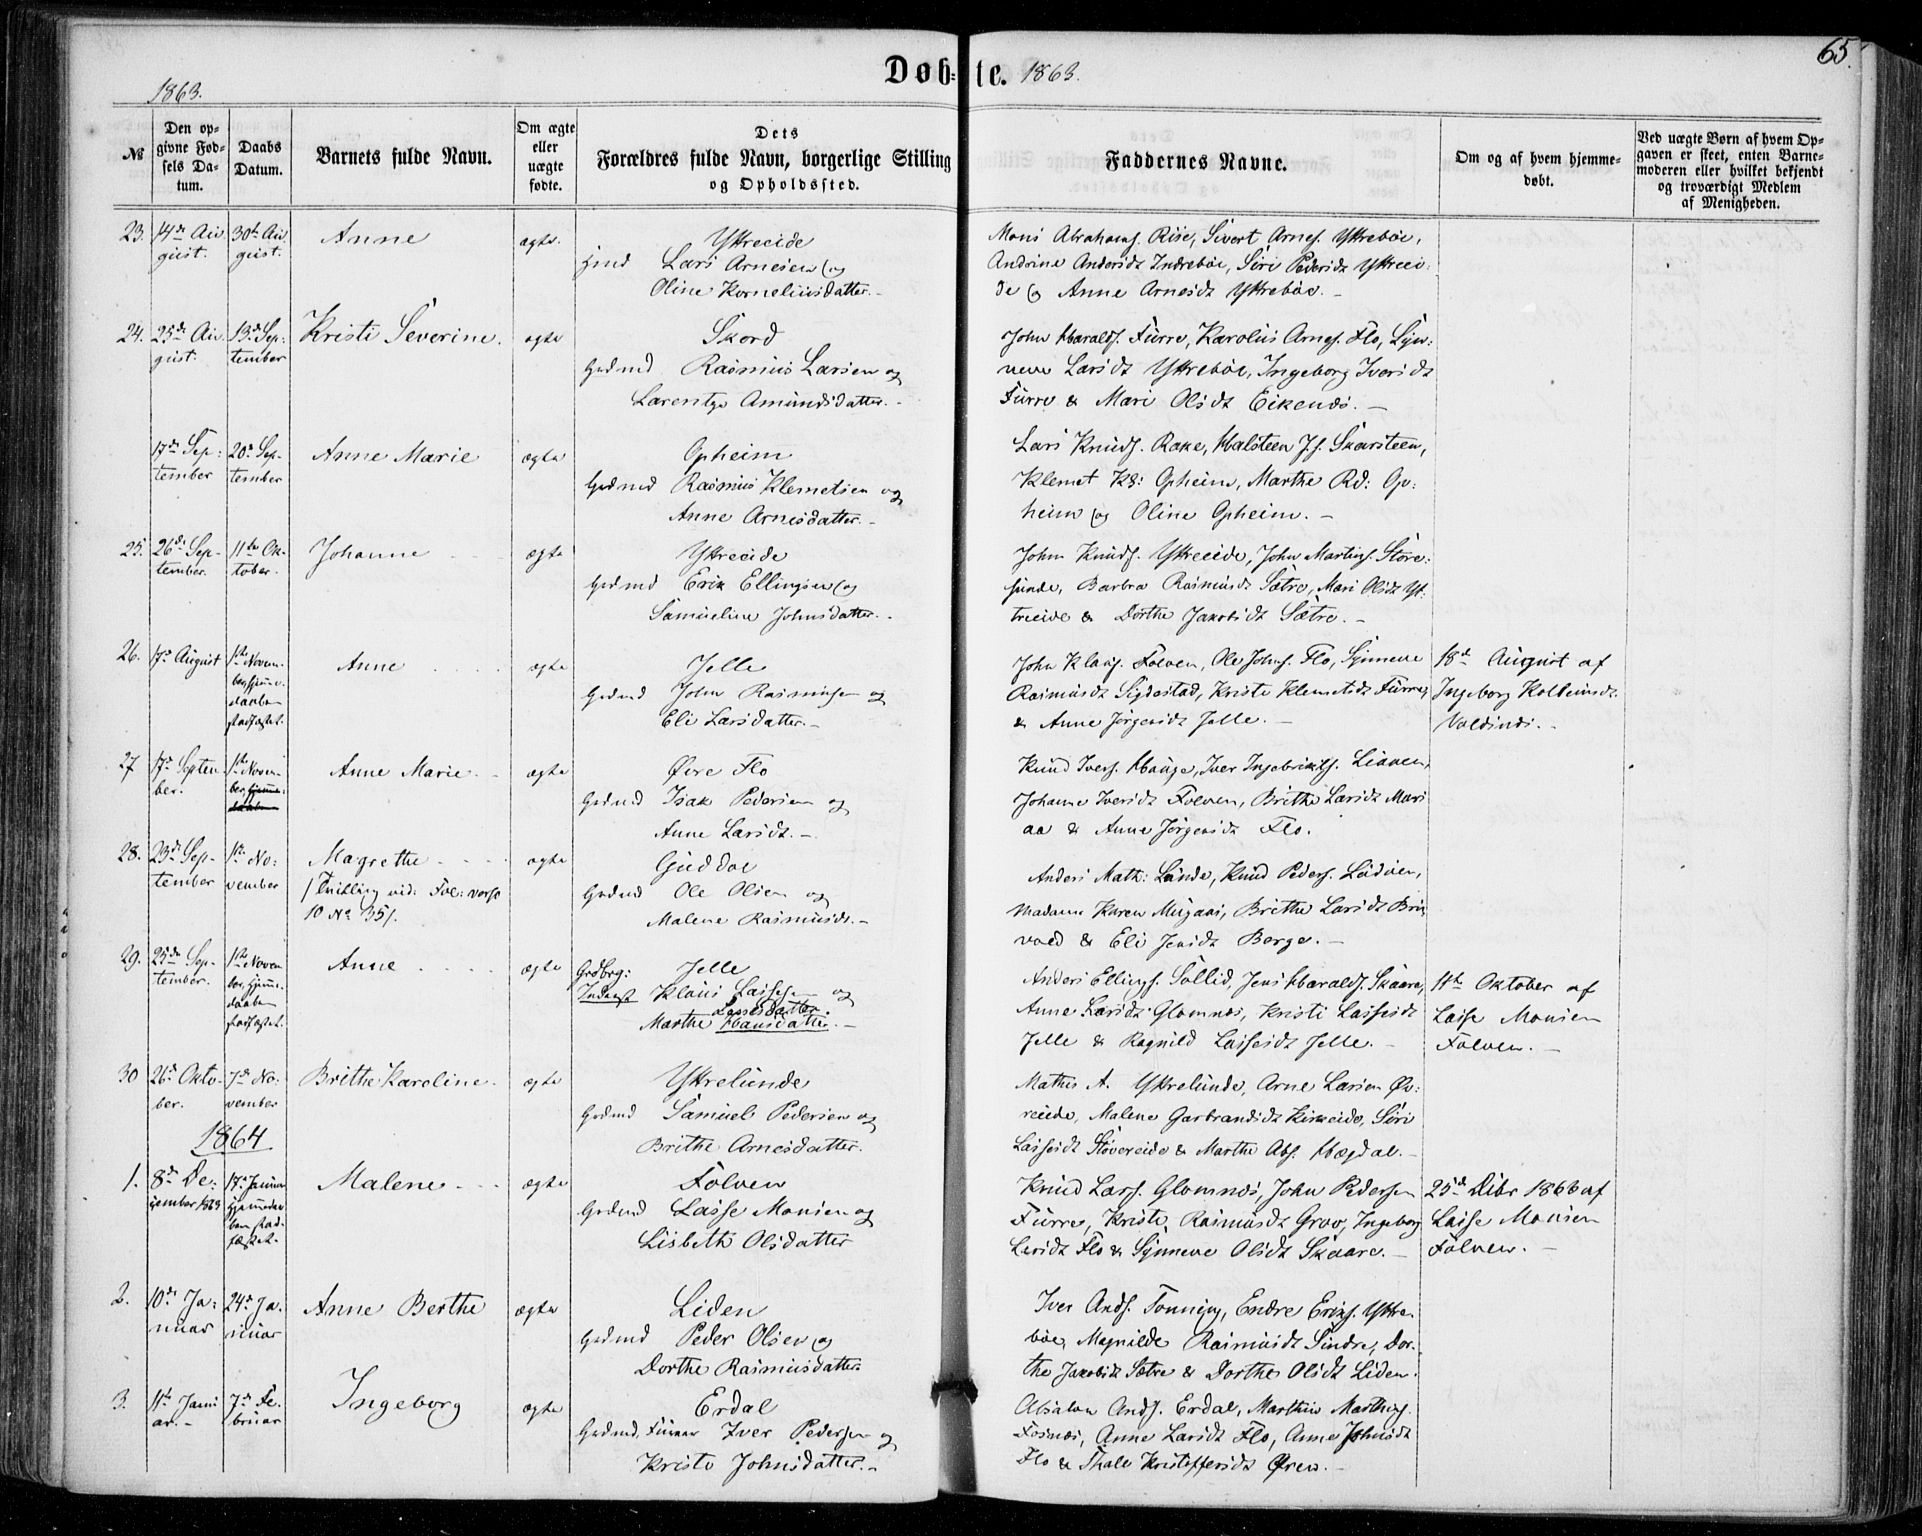 65.
Døb= te. 1863.
1863.
№
Den op=
givne Fød=
sels Da=
tum.
Daabs
Datum.
Barnets fulde Navn.
Om ægte
eller
uægte
fødte.
Dets
Forældres fulde Navn, borgerlige Stilling
og Opholdssted.
Faddernes Navne.
Om og af hvem hjemme=
døbt.
Ved uægte Børn af hvem Op=
gaven er skeet, enten Barne=
moderen eller hvilket bekjendt
og troværdigt Medlem
af Menigheden.
23. 14de Au
gust.
30te Au
gust.
Anne
ægte.
Yttreeide
Lars Arnesen og
Oline Korneliusdatter.
Mons Abrahams. Rise, Sivert Arnes. Yttrebøe,
Andrine Andersdt Indrebøe, Siri Pedersdt Yttreei=
de og Anne Arnesdt Yttrebøe.
24. 25de Au
gust.
13de Sep=
tember
Kristi Severine.
ægte
Skord
Grdmd Rasmus Larsen og
Larentze Amundsdatter.
John Haralds. Furre, Karolus Arnes. Flo, Syn=
neve Larsdt Yttrebøe, Ingeborg Iversdt
Furre & Mari Olsdt Eikenæs.
17de Sep=
tember
20de Sep=
tember
Anne Marie
ægte
Opheim
Grdmd Rasmus Klemetsen og
Anne Arnesdatter.
Lars Knuds. Rake, Halsteen J.s. Skarsteen,
Klemet Ks: Opheim, Marthe Rd: Op=
heim og Oline Opheim.
25. 26de Sep=
tember.
11te Ok=
tober.
Johanne
ægte
Yttreeide
Grdmd Erik Ellingsen og
Samueline Johnsdatter.
John Knuds. Yttreeide, John Martins. Store=
sunde, Barbra Rasmusdt Sætre, Mari Olsdt Yt=
treeide & Dorthe Jakobsdt Sætre.
26. 17de August
1ste Novem=
ber, hjemme=
daaben
stadfæstet.
Anne
ægte
Jelle
Grdmd John Rasmusen og
Eli Larsdatter.
John Klaus. Folven, Ole Johns. Flo, Synneve
Rasmusdt Sigdestad, Kristi Klemetsdt Furre,
& Anne Jørgensdt Jelle.
18de August af
Ingeborg
27 17de Septem
ber.
1ste Novem=
ber,
Anne Marie
ægte
Øvre Flo
Grdmd Isak Pedersen og
Anne Larsdt.
Knud Ivers. Hauge, Iver Ingebrikts. Liaven,
Johanne Iversdt Folven, Brithe Larsdt Mari
aa & Anne Jørgensdt Flo.
28. 23de Sep=
tember
1ste No=
vember
Magrethe
/Tvilling vid: Fol: verso
10 No 35/.
ægte
Guddal
Grdmd Ole Olsen og
Malene Rasmusdt.
Anders Math: Lunde, Knud Peders. Lødøen,
Madame Karen Mugaas, Brithe Larsdt Brix
vold & Eli Jensdt Berge.
29. 25de Sep=
tember.
1ste Novem
ber, hjemme=
daaben
stadfæstet.
Anne
ægte
Grdbrg:
Inderst
Jelle
Klaus Lassesen og
Lassesdatter.
Marthe Hansdatter.
Anders Ellings. Sollid, Jens Haralds. Skaare,
Anne Larsdt Glomnæs, Kristi Lassesdt
Jelle & Ragnild Lassesdt Jelle.
11te Oktober af
Lasse Monsen
Folven.
30 26de Okto=
ber.
7de No=
vember
Brithe Karoline.
ægte
Yttrelunde
Grdmd Samuel Pedersen og
Brithe Arnesdatter.
Mathis A. Yttrelunde, Arne Larsen Øv=
reeide, Malene Garbrandsdt Kirkeide, Siri
Lassesdt Støvereide & Marthe Abs. Hægdal.
1864
1. 8de De=
cember 1863
17de Januar
hjemmedaa
ben stad=
fæstet.
Malene
ægte
Folven
Grdmd Lasse Monsen og
Lisbeth Olsdatter
Knud Lars. Glomnæs, John Pedersen
Furre, Kristi Rasmusdt Grov, Ingeborg
Larsdt Flo & Synneve Olsdt Skaare.
25de Dcbr 1863 af
Lasse Monsen
Folven.
2. 10de Ja=
nuar
24de Ja=
nuar
Anne Berthe
ægte
Liden
Grdmd Peder Olsen og
Dorthe Rasmusdatter
Iver Ands. Tonning, Endre Eriks. Yttre=
bøe, Magnilde Rasmusdt Sindre, Dor=
the Jakobsdt Sætre & Dorthe Olsdt Liden.
3. 11te Janu
ar.
7de Fe=
bruar
Ingeborg
ægte
Erdal
Grdmd. Iver Pedersen og
Kristi Johnsdatter.
Absalon Ands. Erdal, Marthin Marthins.
Fosnæs, Anne Larsdt Flo, Anne Johnsdt
Flo & Thale Kristoffersdt Øren.